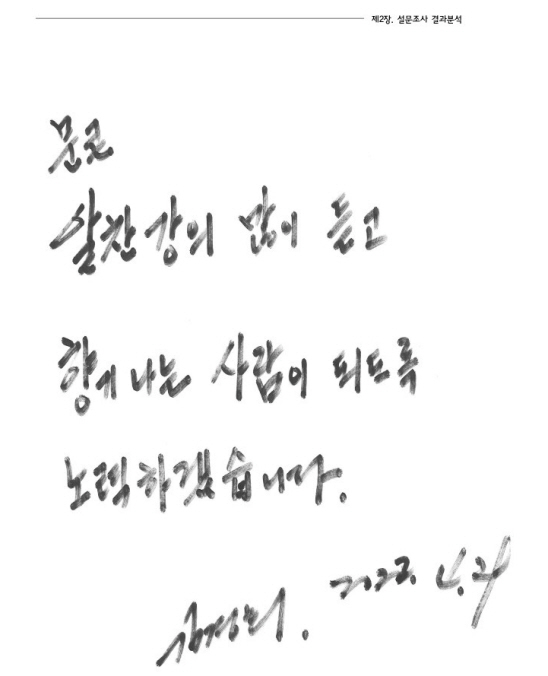 제2장. 설문조사 결과분석
알찬 강의 많이 듣고
향기 나는 사람이 되도록
노력하겠습니다.